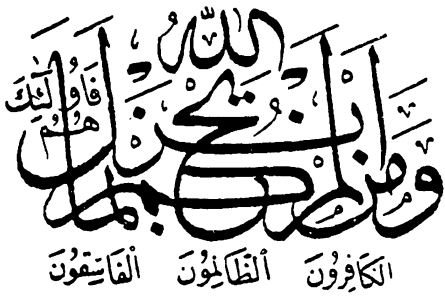 وَمَن لَّمْ يَحْكُم بِمَا أَنزَلَ اللَّهُ فَأُولَٰئِكَ هُمُ
الكَافِرُونَ الظَّالِمُونَ الفَاسِقُونَ